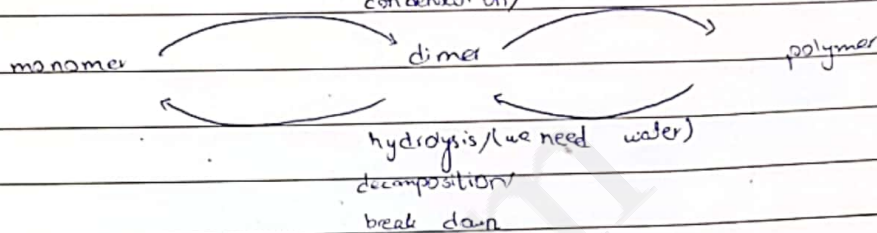 condensation/
monomer dimer polymer
hydrolysis/(we need water)
decomposition/
break down